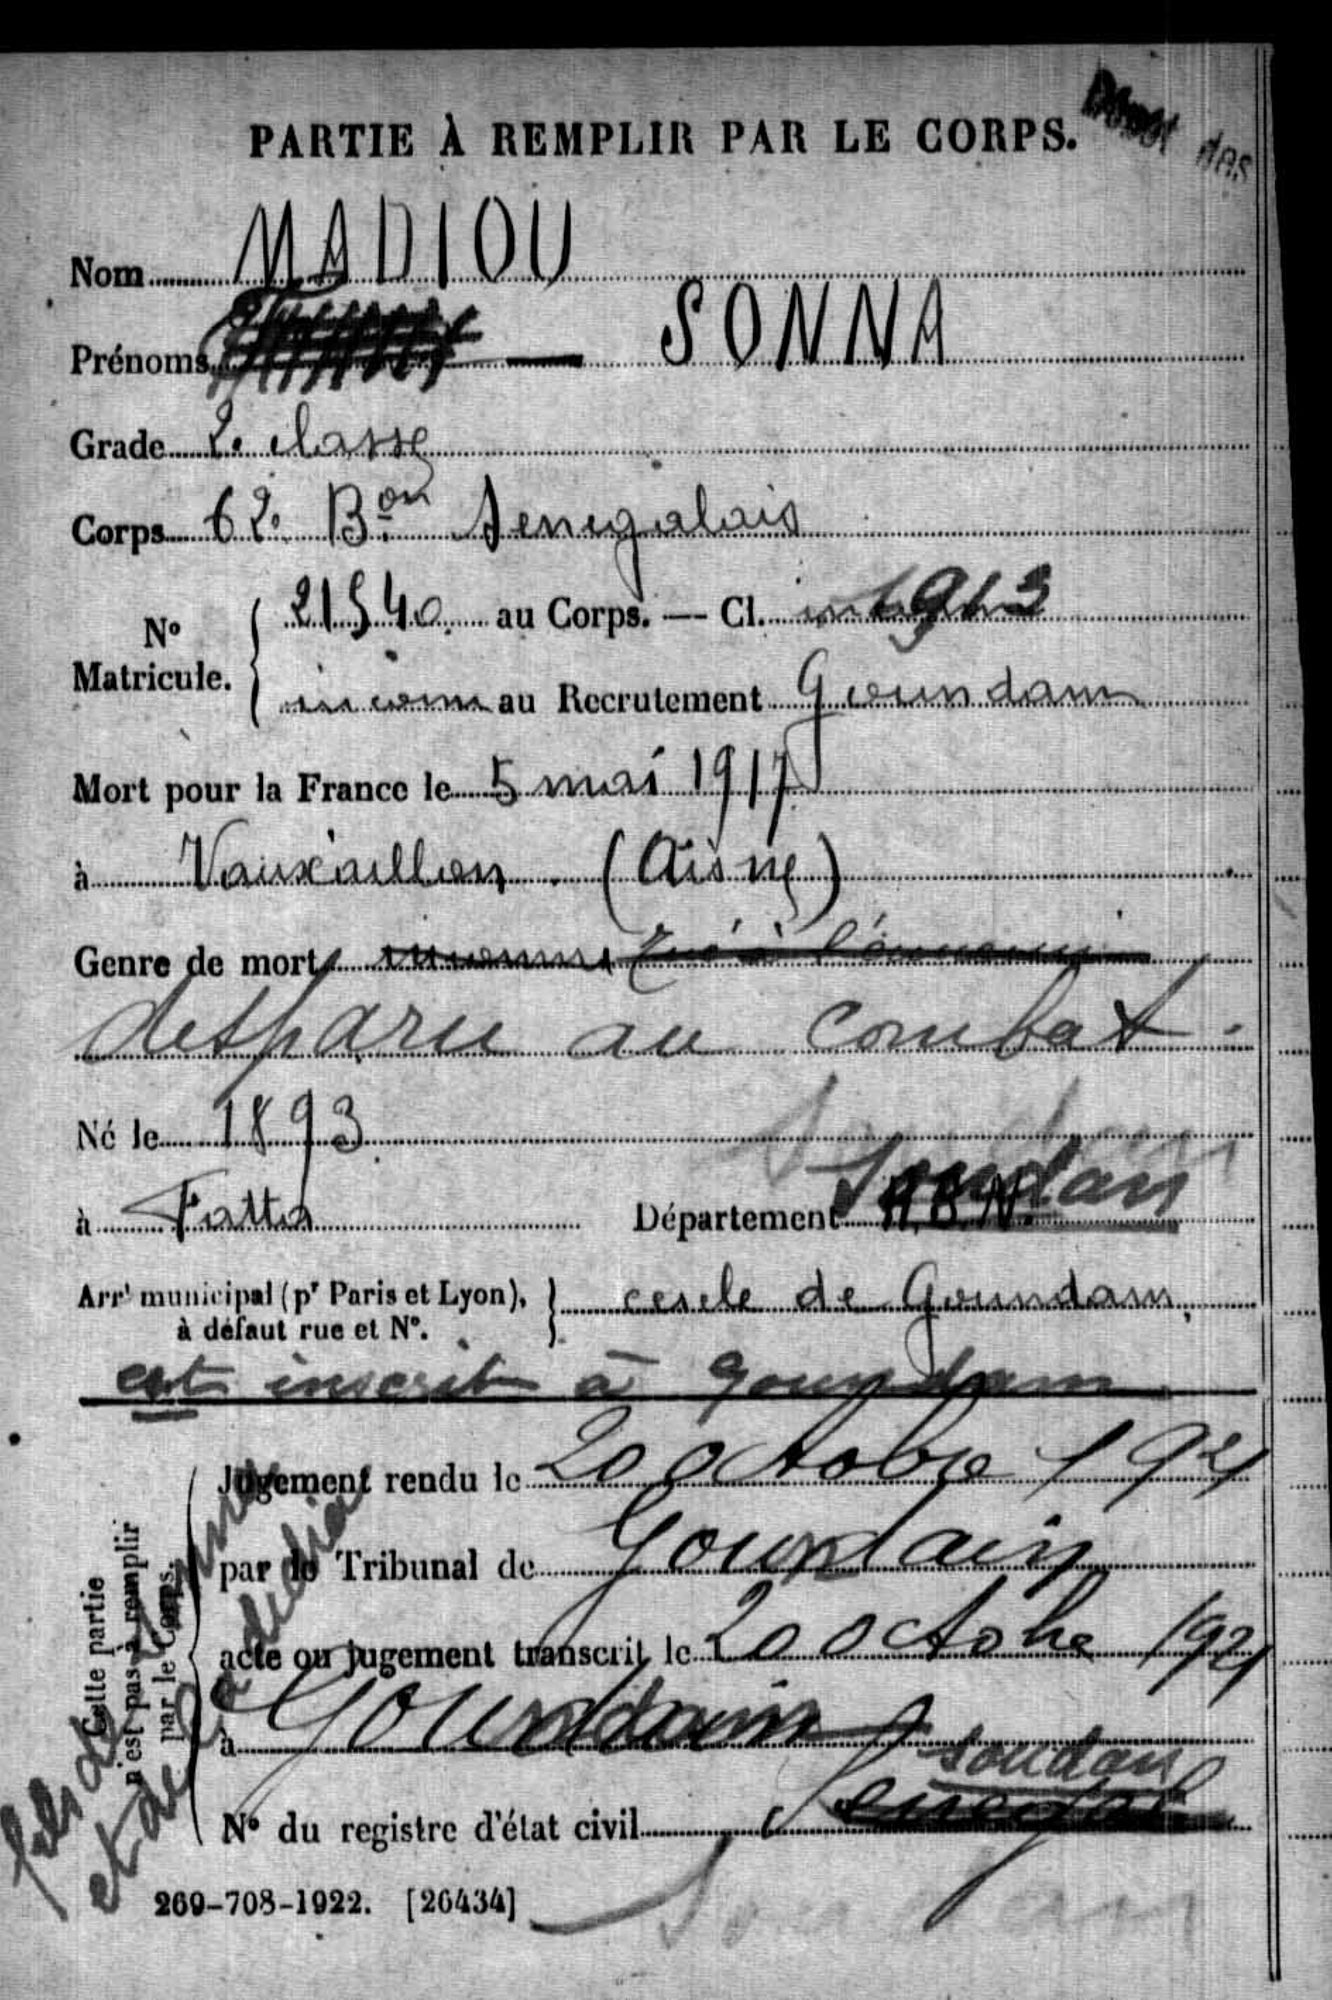 des
PARTIE À REMPLIR PAR LE CORPS.
Nom MADIOU
Prénoms — SONNA
Grade 2e classe
Corps 62e Bon Senegalais
No Matricule. 21540 au Corps. — Cl. 1913
inconnu au Recrutement Goundam
Mort pour la France le 5 mai 1917
à Vauxaillon (Aisne)
Genre de mort inconnu Tué à l'ennemi
desparu au combat.
Né le 1893
à Fatta Département A.B.N. Soudan
Arrt municipal (pr Paris et Lyon), à défaut rue et No. cercle de Goundam
est inscrit à Goundam
Cette partie n'est pas à remplir par le Corps.
Jugement rendu le 20 octobre 1921
par le Tribunal de Goundam
acte ou jugement transcrit le 20 octobre 1921
à Goundam
soudan
No du registre d'état civil Senegal
fils de
et de
269-708-1922. [26434]
Soudan